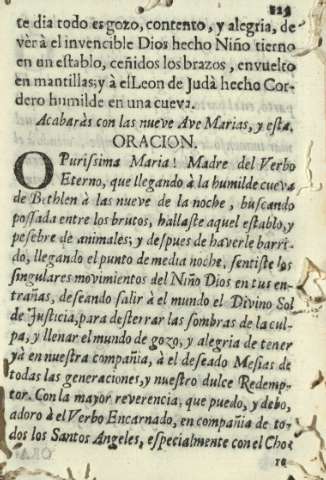 te dia todo es gozo, contento, y alegria, de
vèr à el invencible Dios hecho Niño tierno
en un establo, ceñidos los brazos, envuelto
en mantillas; y à el Leon de Judà hecho Cor-
dero humilde en una cueva.
Acabaràs con las nueve Ave Marias, y esta
ORACION.
O Purissima Maria! Madre del Verbo
Eterno, que llegando à la humilde cueva
de Bethlen à las nueve de la noche, buscando
possada entre los brutos, hallaste aquel establo, y
pesebre de animales; y despues de haverle barri-
do, llegando el punto de media noche, sentiste los
singulares movimientos del Niño Dios en tus en-
trañas, deseando salir à el mundo el Divino Sol
de Justicia, para desterrar las sombras de la cul-
pa, y llenar el mundo de gozo, y alegria de tener
yà en nuestra compañia, à el deseado Mesias de
todas las generaciones, y nuestro dulce Redemp-
tor. Con la mayor reverencia, que puedo, y debo,
adoro à el Verbo Encarnado, en compañia de to-
dos los Santos Angeles, especialmente con el Cho-